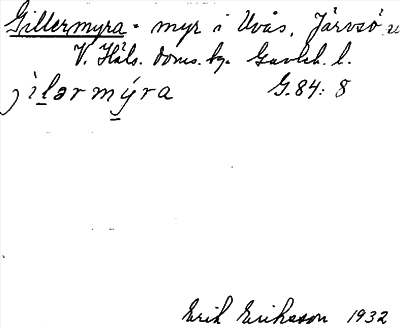 Gillermyra - myr i Uvås, Järvsö
V. Häls. doms. by. Gävleb. l.
jìlər mýra G.84: 8
Erik Eriksson 1932